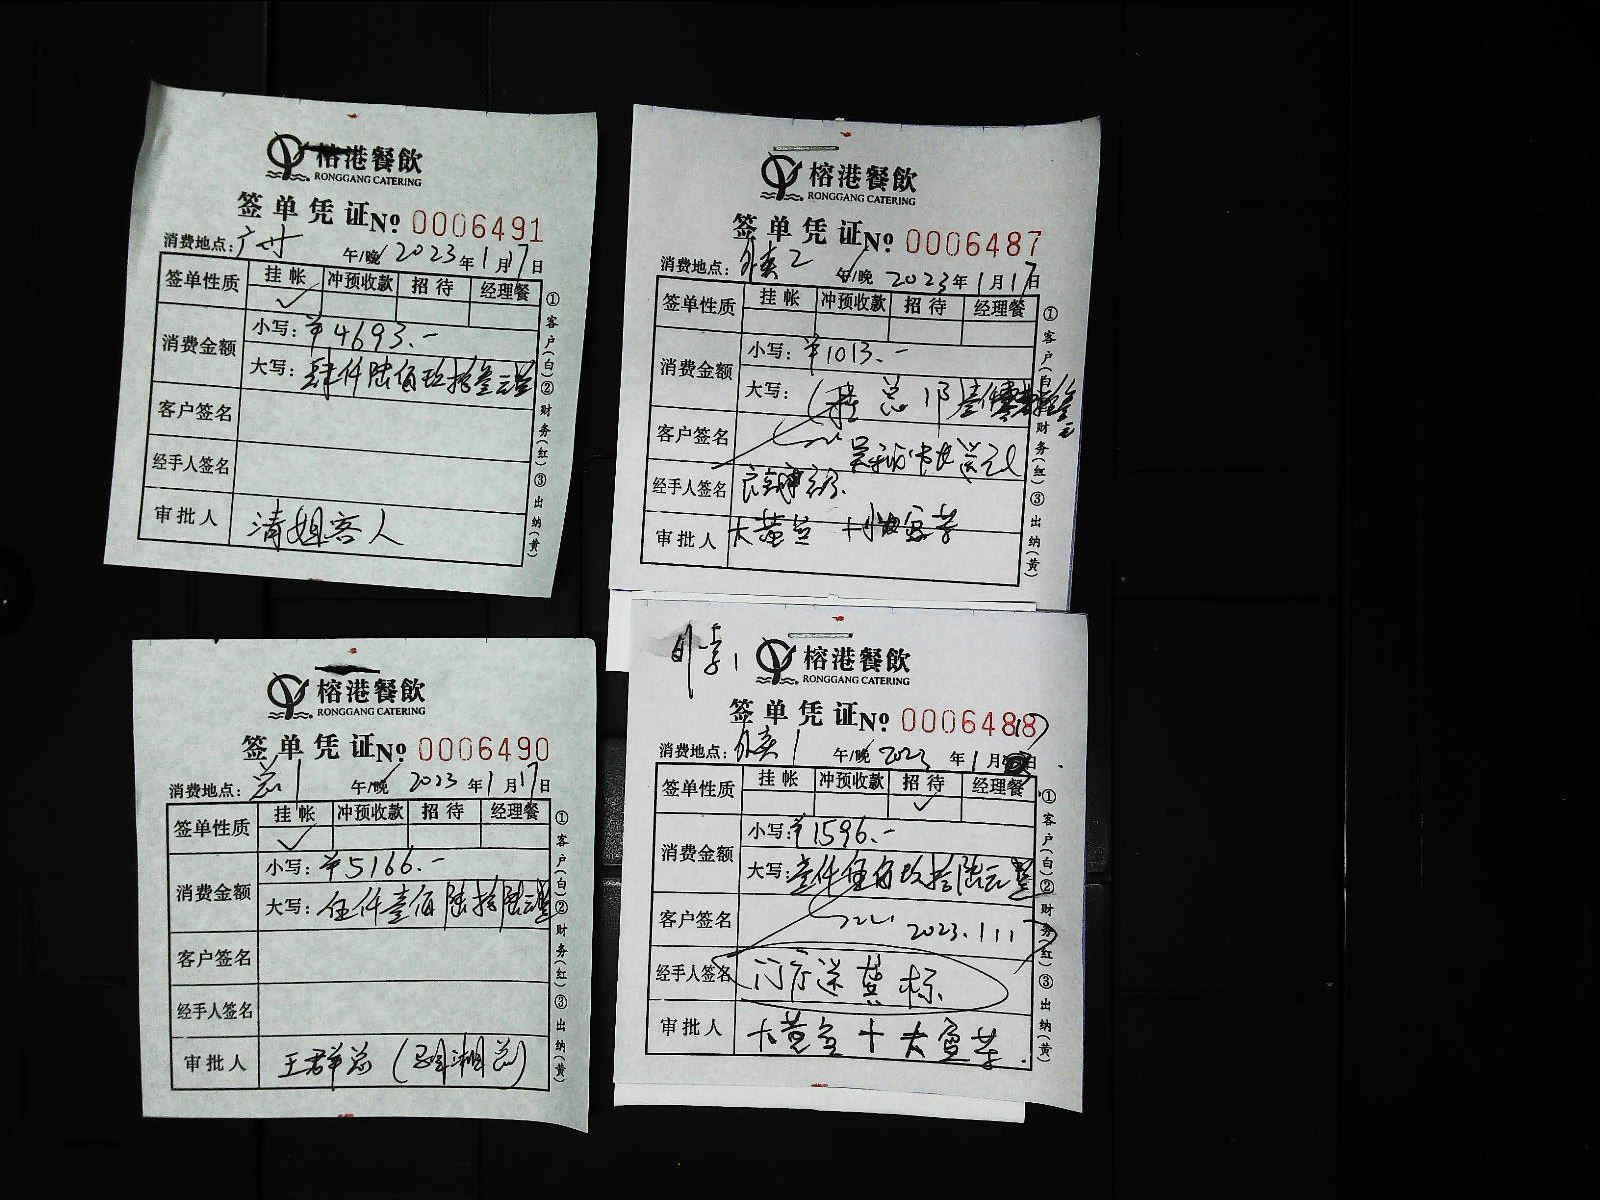 榕港餐飲
RONGGANG CATERING
签单凭证 No 0006491
消费地点：广州 午/晚 2023年1月17日
签单性质 挂帐 冲预收款 招待 经理餐
✓
消费金额 小写：¥4693.-
大写：肆仟陆佰玖拾叁元整
客户签名
经手人签名
审批人 清姐客人
①客户(白)②财务(红)③出纳(黄)
榕港餐飲
RONGGANG CATERING
签单凭证 No 0006487
消费地点：外卖2 午/晚 2023年1月17日
签单性质 挂帐 冲预收款 招待 经理餐
消费金额 小写：¥1013.-
大写：
客户签名
经手人签名
审批人
①客户(白)②财务(红)③出纳(黄)
榕港餐飲
RONGGANG CATERING
签单凭证 No 0006490
消费地点： 午/晚 2023年1月17日
签单性质 挂帐 冲预收款 招待 经理餐
✓
消费金额 小写：¥5166.-
大写：伍仟壹佰陆拾陆元整
客户签名
经手人签名
审批人 王君华总
①客户(白)②财务(红)③出纳(黄)
榕港餐飲
RONGGANG CATERING
签单凭证 No 0006488
17
消费地点：外卖1 午/晚 2023年1月 日
签单性质 挂帐 冲预收款 招待 经理餐
✓
消费金额 小写：¥1596.-
大写：壹仟伍佰玖拾陆元整
客户签名 2023.1.17
经手人签名
审批人
①客户(白)②财务(红)③出纳(黄)